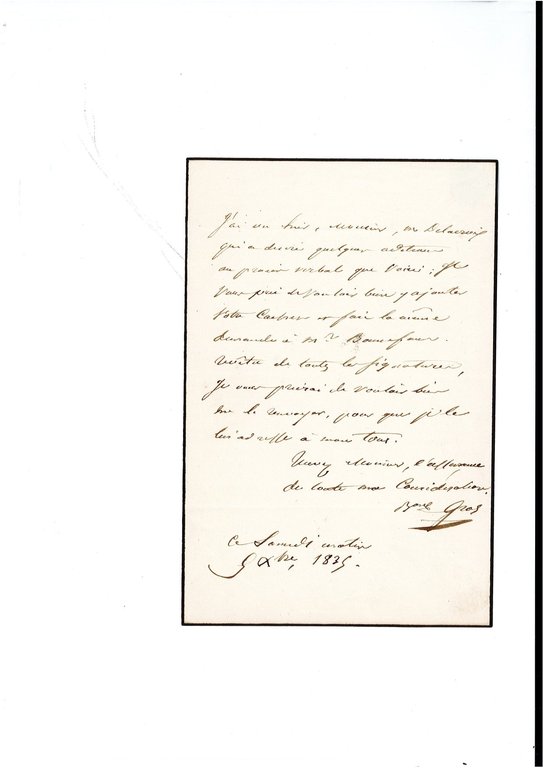 J'ai vu hier, Monsieur, M Delacroix
qui a désiré quelques additions
au procès verbal que voici; Je
vous prie de vouloir bien y ajouter
votre Cachet et faire la même
demande à Mr Bonnefour.
revêtu de toutes les signatures,
Je vous prierai de vouloir bien
me le renvoyer, pour que je le
lui adresse à mon tour.
Monsieur, l'assurance
de toute ma Considération.
Bon Gros
Ce Samedi matin
5 Xbre, 1835.